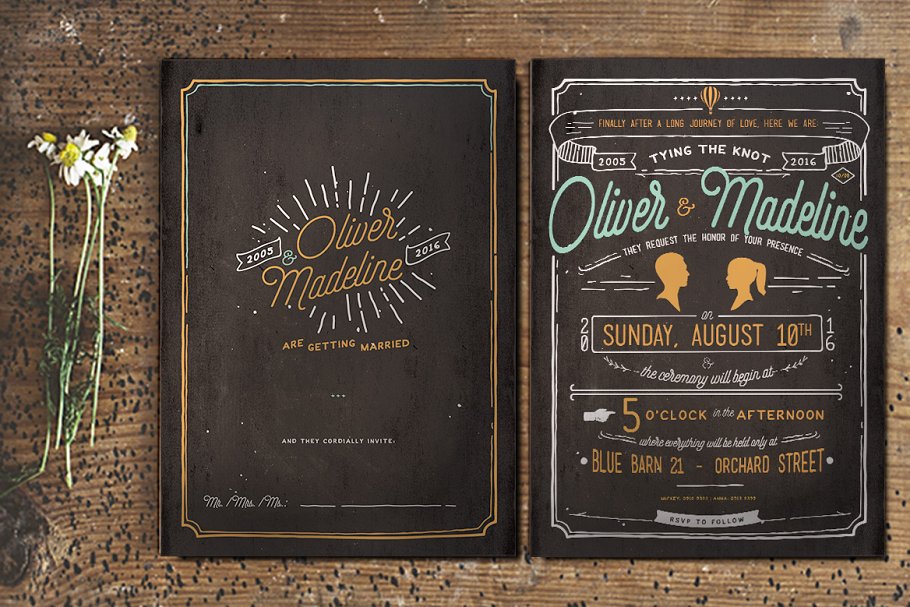 Oliver
2005 & 2016
Madeline
ARE GETTING MARRIED
AND THEY CORDIALLY INVITE:
Mr. /Mrs. /Ms.:
FINALLY AFTER A LONG JOURNEY OF LOVE, HERE WE ARE:
2005 TYING THE KNOT 2016
Oliver & Madeline
THEY REQUEST THE HONOR OF YOUR PRESENCE
on
20 SUNDAY, AUGUST 10TH 16
&
the ceremony will begin at
5 O'CLOCK in the AFTERNOON
where everything will be held only at
BLUE BARN 21 - ORCHARD STREET
RSVP TO FOLLOW